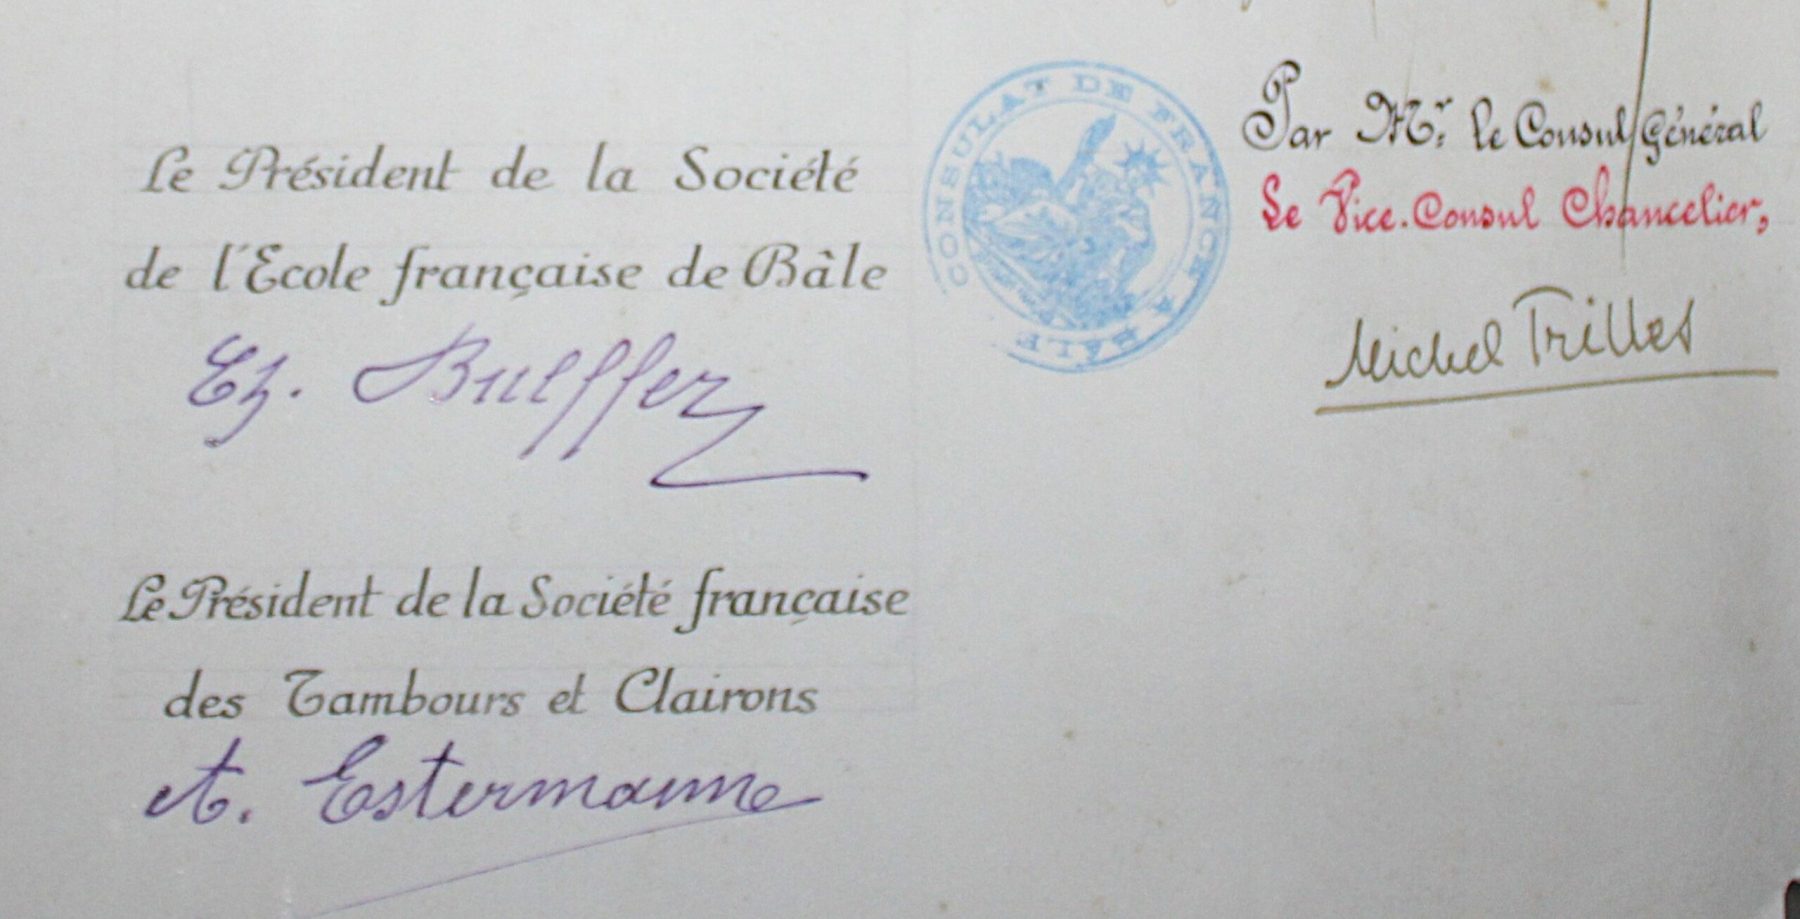 Le Président de la Société
de l'Ecole française de Bâle
Eh. Bueffer
Le Président de la Société française
des Tambours et Clairons
A. Estermanne
CONSULAT DE FRANCE A BÂLE
Par Mr. le Consul Général
Le Vice-Consul Chancelier,
Michel Trilles